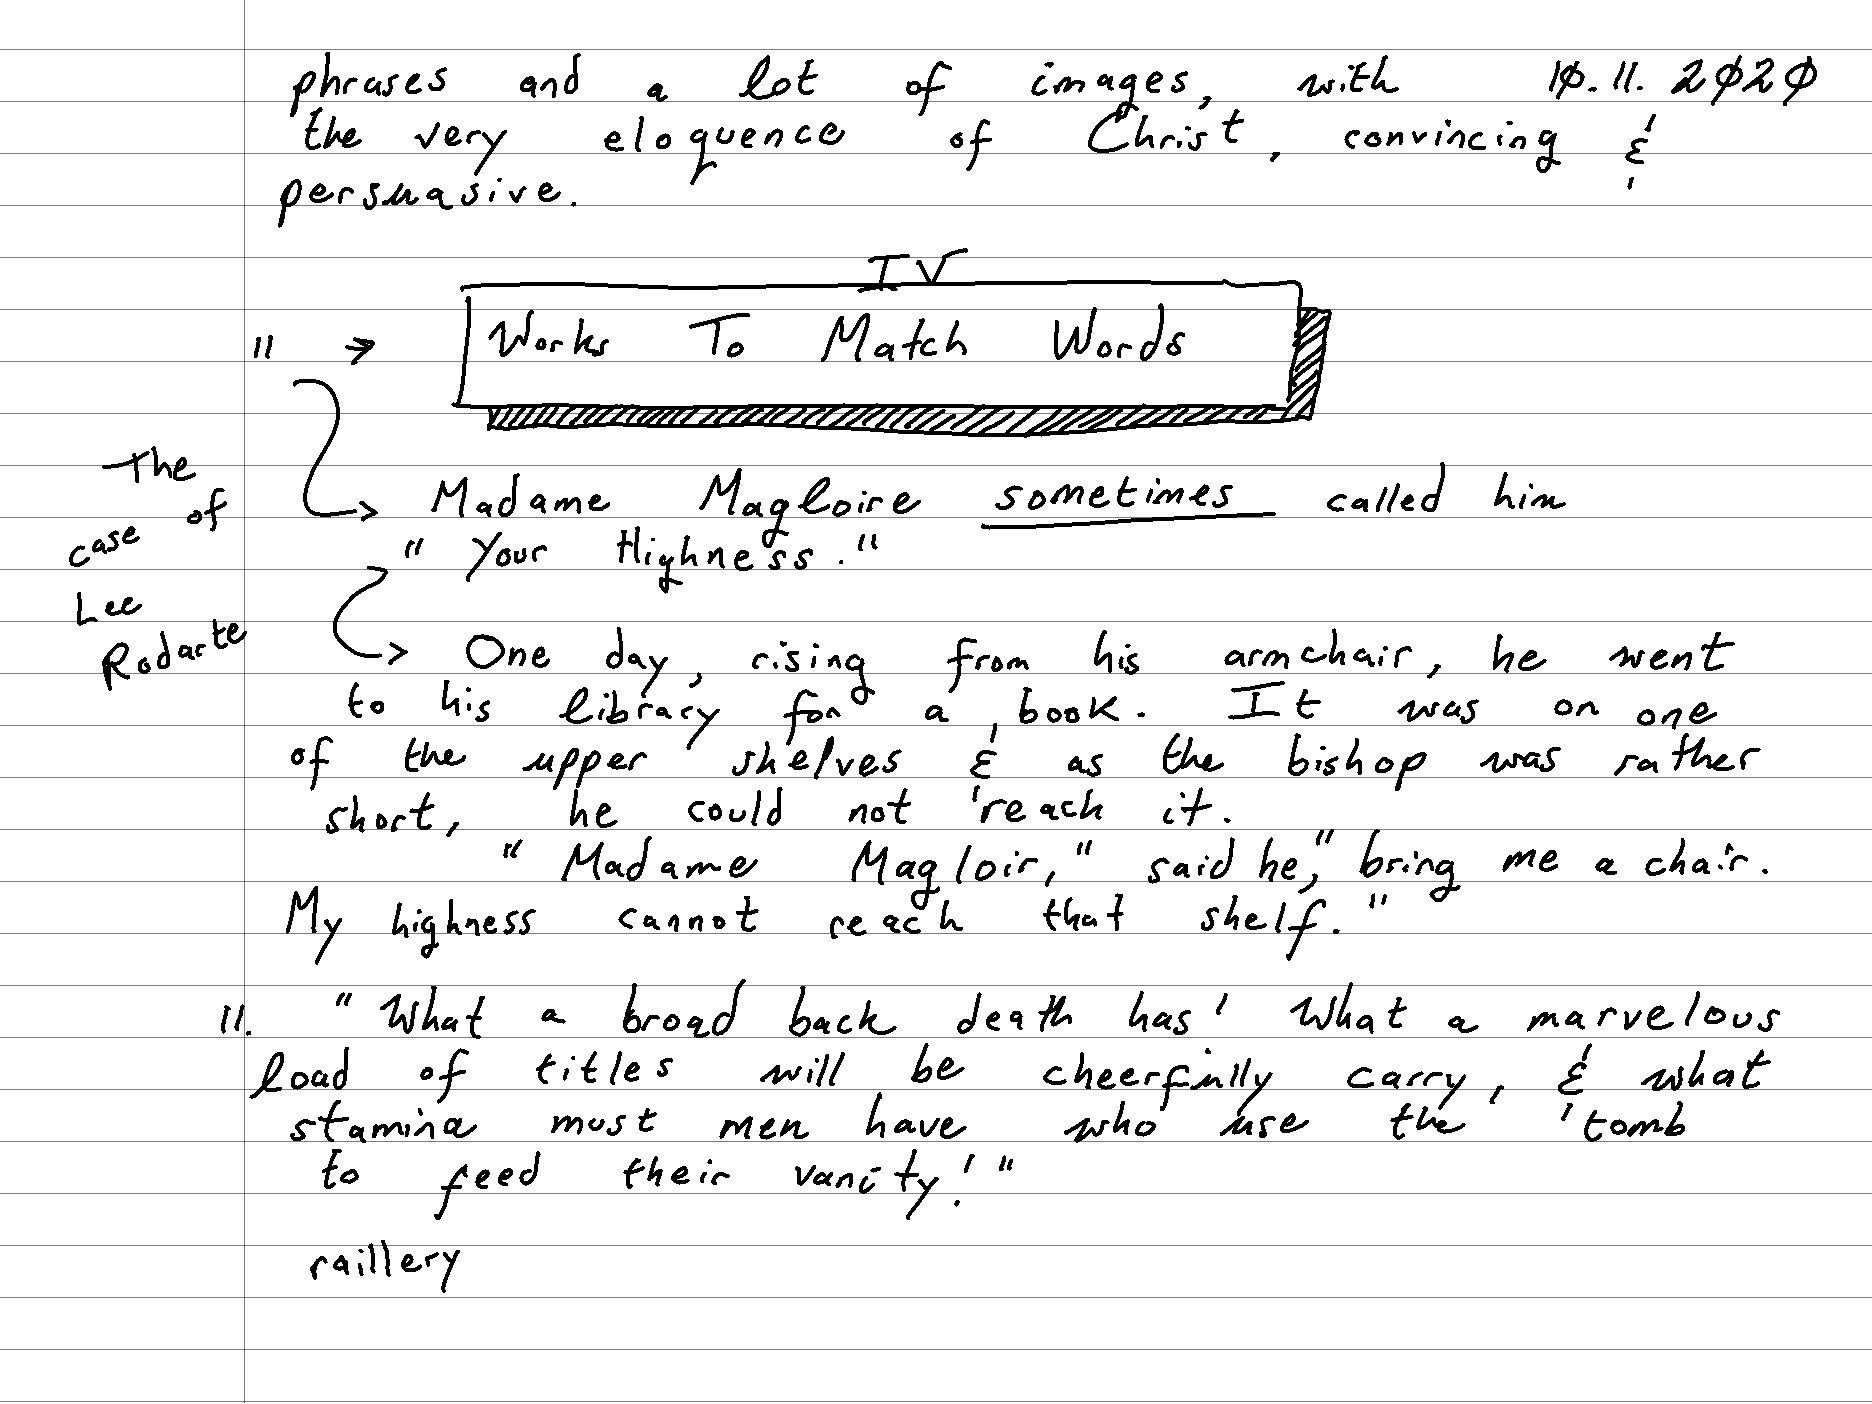 phrases and a lot of images, with 10.11.2020
the very eloquence of Christ, convincing &
persuasive.
IV
11 → Works To Match Words
The
case of
Lee
Rodarte
Madame Magloire sometimes called him
"Your Highness."
One day, rising from his armchair, he went
to his library for a book. It was on one
of the upper shelves & as the bishop was rather
short, he could not reach it.
"Madame Magloir," said he, "bring me a chair.
My highness cannot reach that shelf."
11. "What a broad back death has! What a marvelous
load of titles will be cheerfully carry, & what
stamina must men have who use the tomb
to feed their vanity!"
raillery